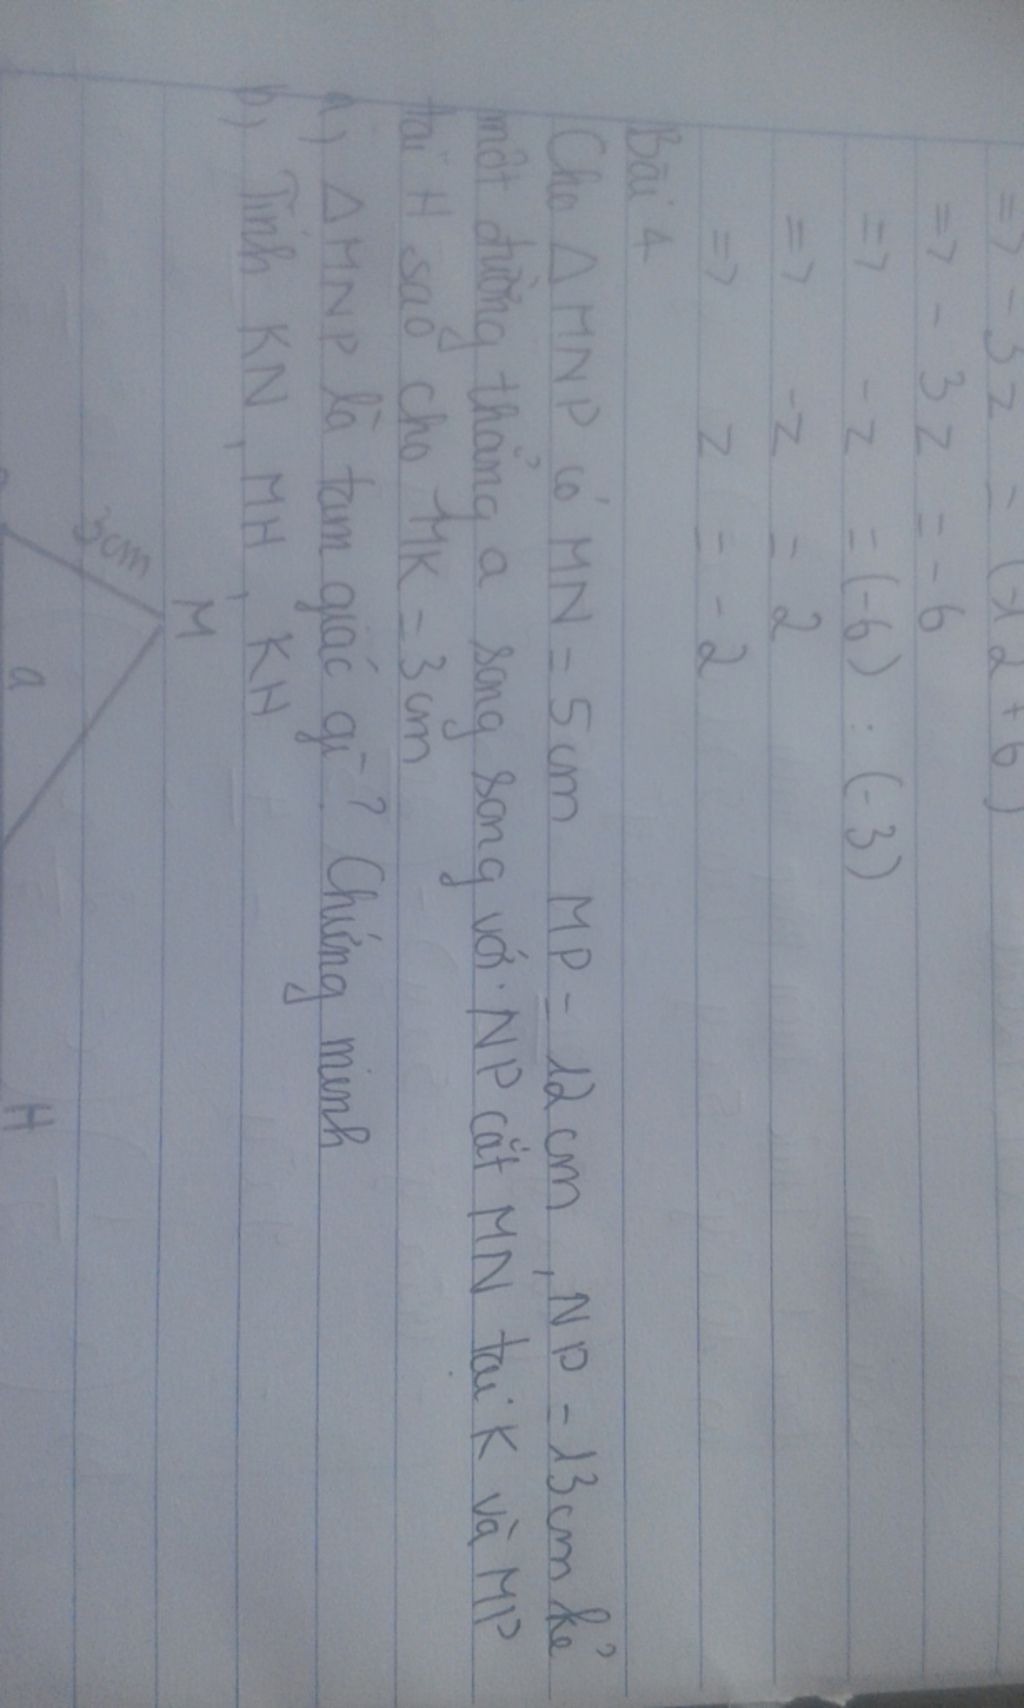 => -3z = (-12+6)
=> -3z = -6
=> -z = (-6) : (-3)
=> -z = 2
=> z = -2
Bài 4
Cho Δ MNP có MN = 5cm MP = 12cm, NP = 13cm kẻ
một đường thẳng a song song với NP cắt MN tại K và MP
tại H sao cho MK = 3cm
a) Δ MNP là tam giác gì? Chứng minh
b) Tính KN, MH, KH
M
3cm
a
H